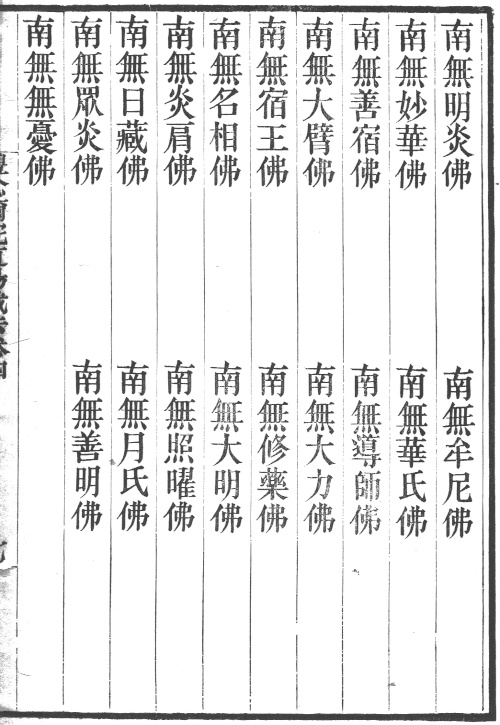 南無明炎佛　南無牟尼佛
南無妙華佛　南無華氏佛
南無善宿佛　南無導師佛
南無大臂佛　南無大力佛
南無宿王佛　南無修藥佛
南無名相佛　南無大明佛
南無炎肩佛　南無照曜佛
南無日藏佛　南無月氏佛
南無眾炎佛　南無善明佛
南無無憂佛